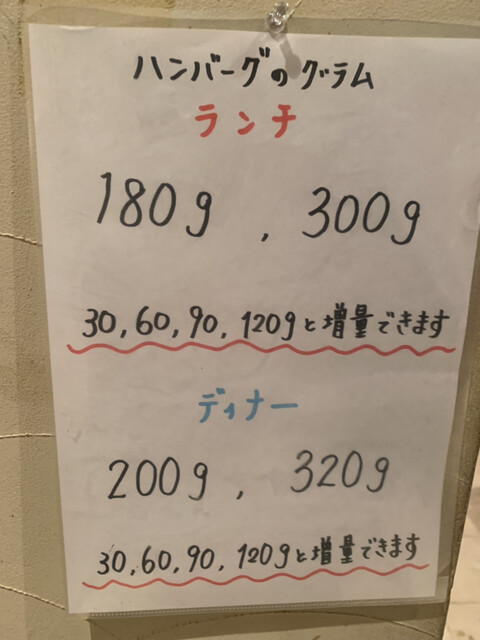 ハンバーグのグラム
ランチ
180g , 300g
30,60,90,120gと増量できます
ディナー
200g , 320g
30,60,90,120gと増量できます